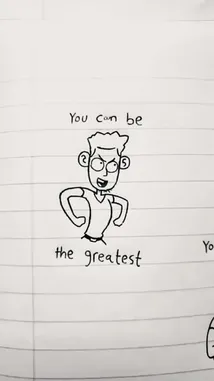 You can be
the greatest
Yo